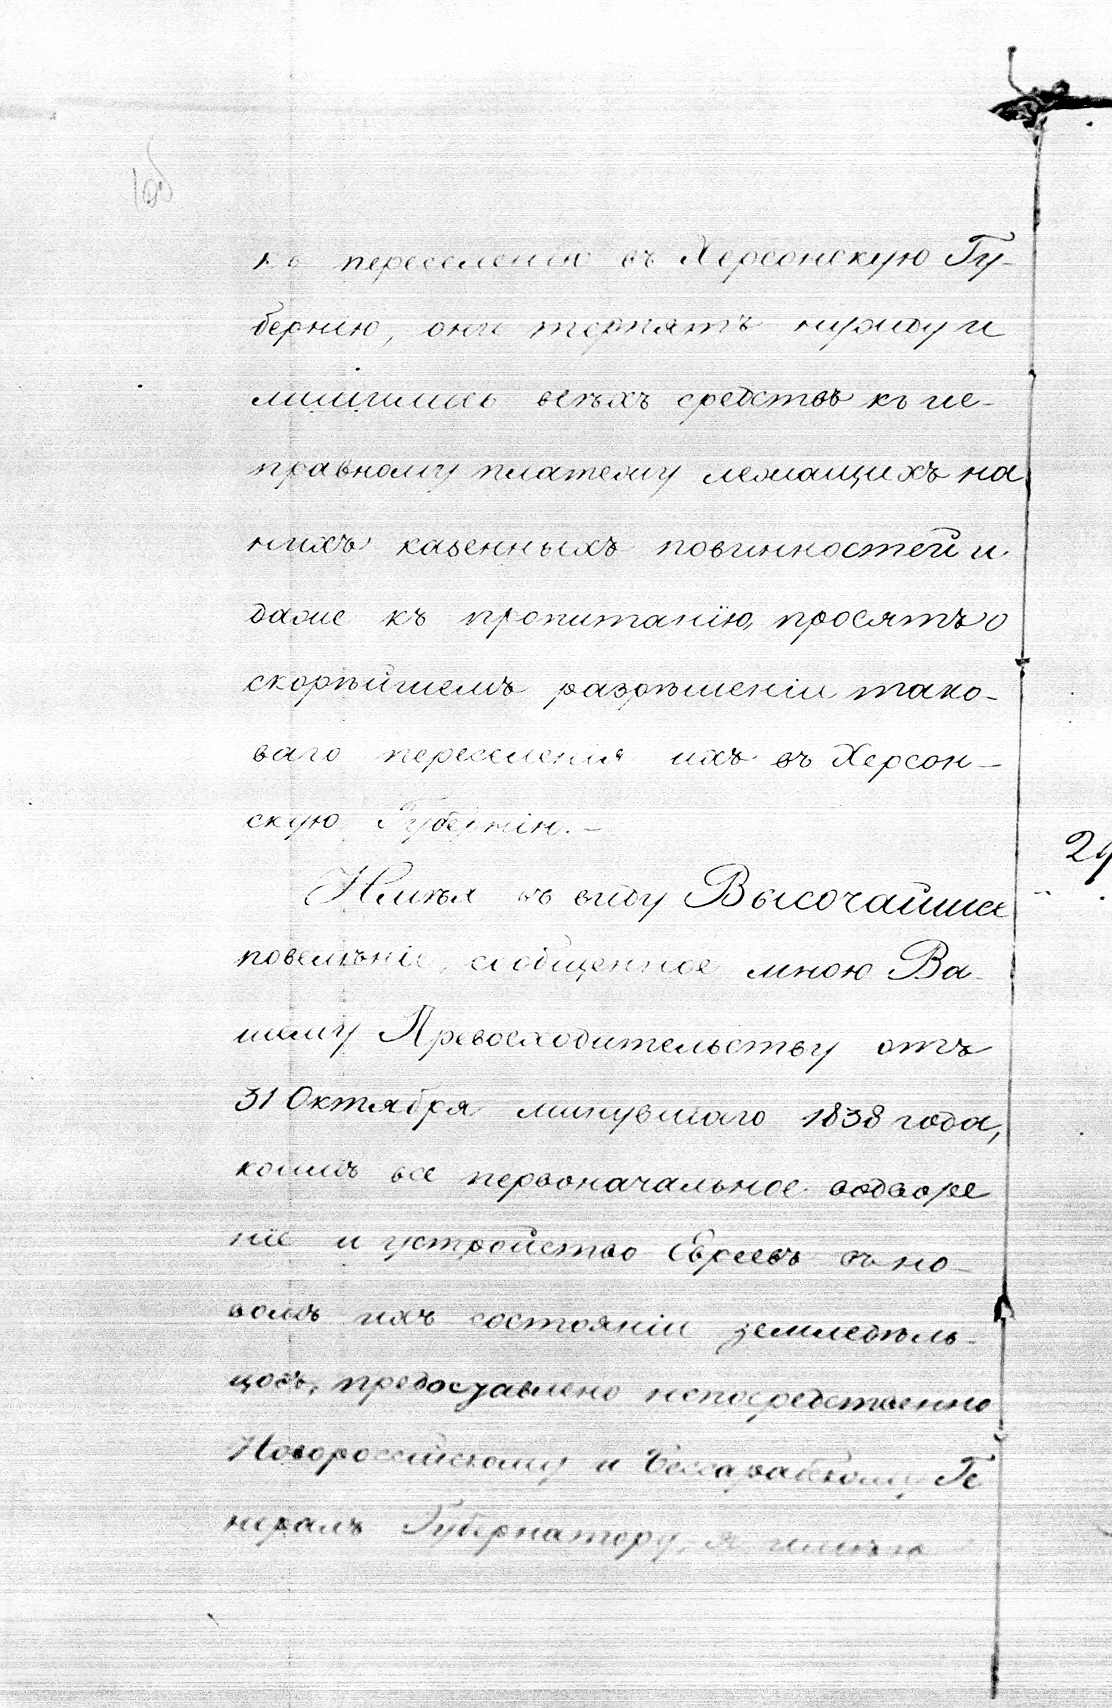 1об
къ переселенію въ Херсонскую Гу-
бернію, они терпятъ нужду и
лишились всѣхъ средствъ къ ис-
правному платежу лежащихъ на
нихъ казенныхъ повинностей и
даже къ пропитанію, просятъ о
скорѣйшемъ разрѣшеніи тако-
ваго переселенія ихъ въ Херсон-
скую Губернію.-
Имѣя въ виду Высочайшее
повелѣніе, сообщенное мною Ва-
шему Превосходительству отъ
31 Октября минувшаго 1838 года,
коимъ все первоначальное водворе
ніе и устройство Евреевъ въ но-
вомъ ихъ состояніи земледѣль-
цовъ, предоставлено непосредственно
Новороссійскому и Бессарабскому Ге
нералъ Губернатору, я имѣю